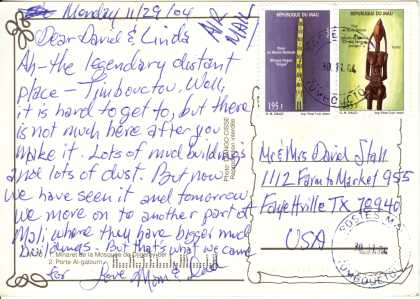 Monday 11/29/04
AIR
MAIL
Dear David & Linda
Ah - the legendary distant
place - Timbouctou. Well,
it is hard to get to, but there
is not much here after you
make it. Lots of mud buildings
and lots of dust. But now
we have seen it and tomorrow
we move on to another part of
Mali, where they have bigger mud
buildings. But that's what we came
for Love, Mom & Dad
Minaret de la Mosquée de
2. Porte Al-gabum
REPUBLIQUE DU MALI
195 F
REPUBLIQUE DU MALI
30.11.04
TOMBOUCTOU
Mr & Mrs David Stall
1112 Farm to Market 955
Fayettville TX 78940
USA
POSTES MALI
TOMBOUCTOU